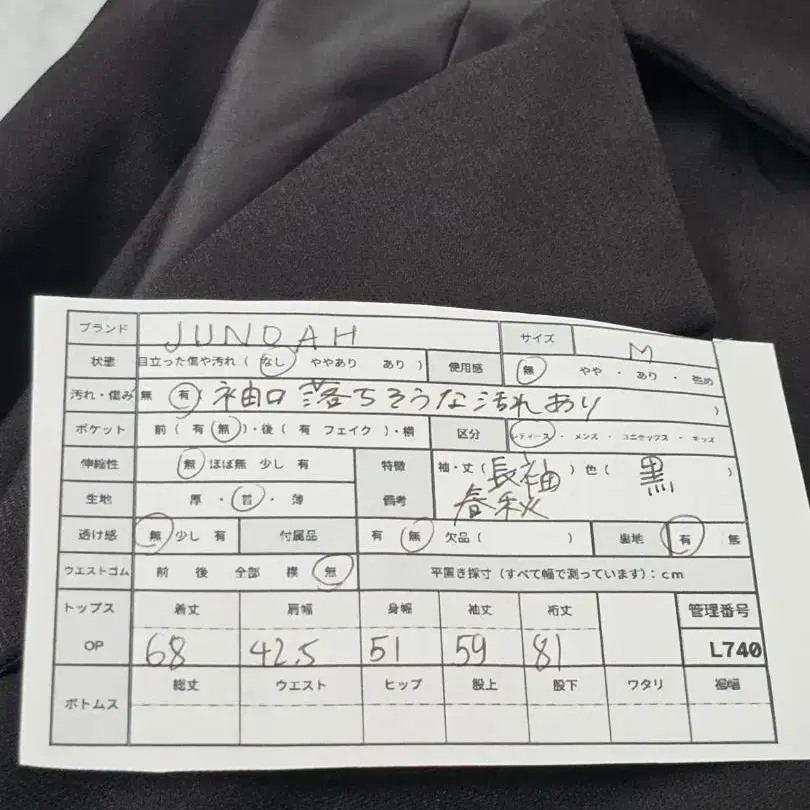 ブランド JUNOAH サイズ M
状態 目立った傷や汚れ ( なし ややあり あり ) 使用感 無 やや ・ あり ・ 強め
汚れ・傷み 無 有 ( 袖口 落ちそうな汚れあり )
ポケット 前 ( 有 無 ) ・後 ( 有 フェイク ) ・横 区分 レディース ・ メンズ ・ ユニセックス ・ キッズ
伸縮性 無 ほぼ無 少し 有 特徴 袖・丈 ( 長袖 ) 色 ( 黒 )
生地 厚 ・ 普 ・ 薄 備考 春秋
透け感 無 少し 有 付属品 有 無 欠品 ( ) 裏地 有 無
ウエストゴム 前 後 全部 横 無 平置き採寸 (すべて幅で測っています) : cm
トップス 着丈 肩幅 身幅 袖丈 裄丈 管理番号
OP 68 42.5 51 59 81 L740
ボトムス 総丈 ウエスト ヒップ 股上 股下 ワタリ 裾幅